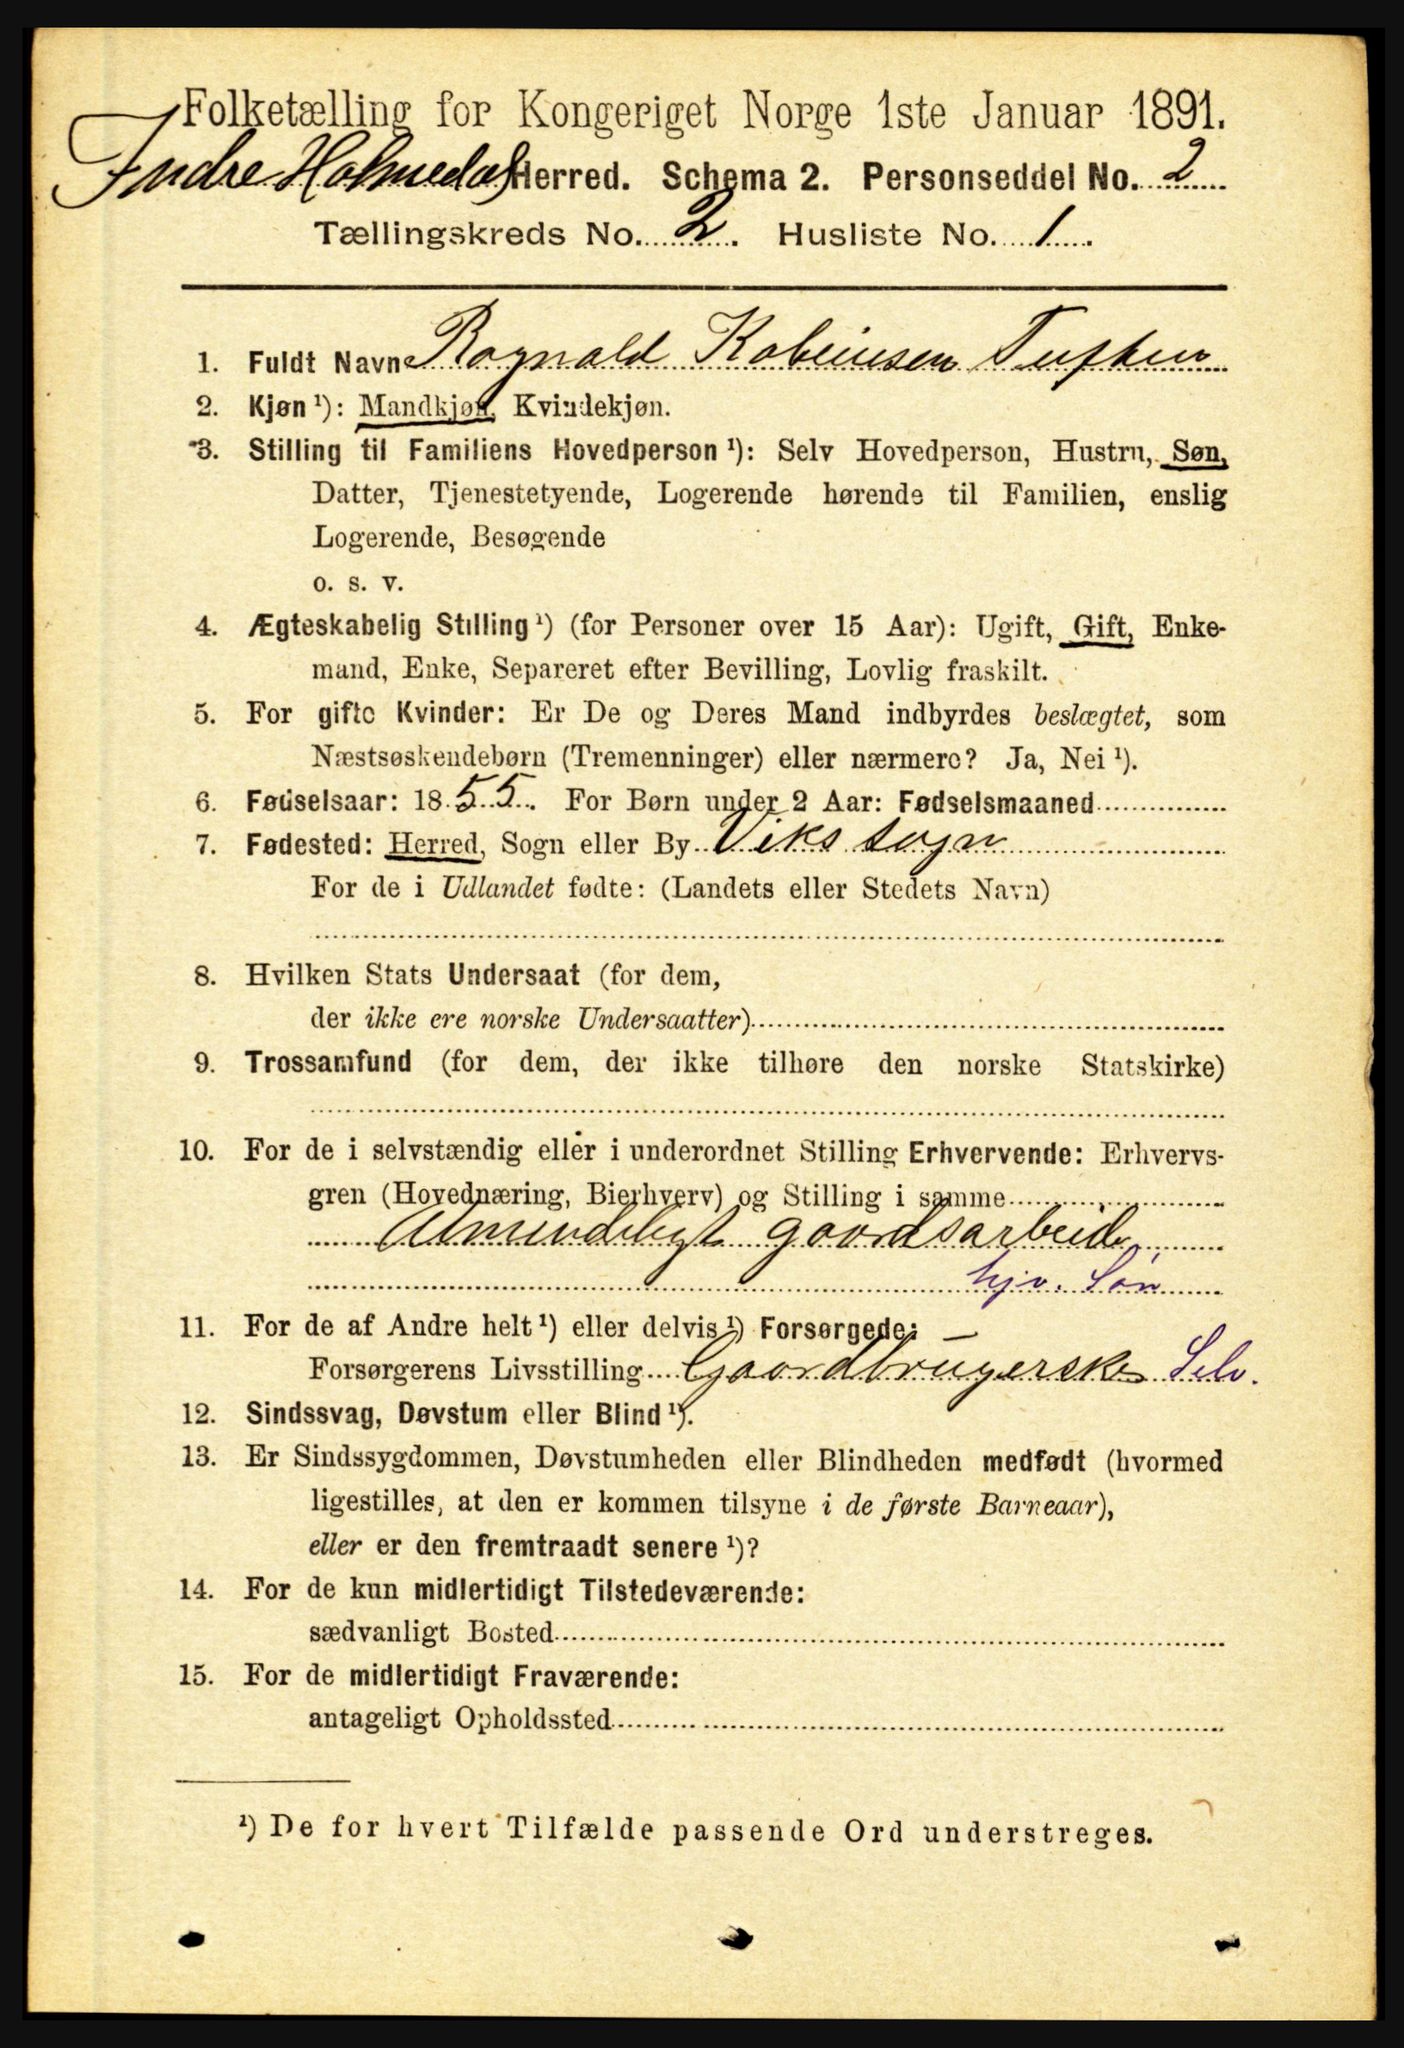 Folketælling for Kongeriget Norge 1ste Januar 1891.
Indre Holmedal Herred. Schema 2. Personseddel No. 2
Tællingskreds No. 2. Husliste No. 1.
1. Fuldt Navn Ragnald Kolbeinsen Tuften
2. Kjøn ¹): Mandkjøn, Kvindekjøn.
3. Stilling til Familiens Hovedperson ¹): Selv Hovedperson, Hustru, Søn,
Datter, Tjenestetyende, Logerende hørende til Familien, enslig
Logerende, Besøgende
o. s. v.
4. Ægteskabelig Stilling ¹) (for Personer over 15 Aar): Ugift, Gift, Enke-
mand, Enke, Separeret efter Bevilling, Lovlig fraskilt.
5. For gifte Kvinder: Er De og Deres Mand indbyrdes beslægtet, som
Næstsøskendebørn (Tremenninger) eller nærmere? Ja, Nei ¹).
6. Fødselsaar: 1855. For Børn under 2 Aar: Fødselsmaaned
7. Fødested: Herred, Sogn eller By Viks sogn
For de i Udlandet fødte: (Landets eller Stedets Navn)
8. Hvilken Stats Undersaat (for dem,
der ikke ere norske Undersaatter)
9. Trossamfund (for dem, der ikke tilhøre den norske Statskirke)
10. For de i selvstændig eller i underordnet Stilling Erhvervende: Erhvervs-
gren (Hovednæring, Bierhverv) og Stilling i samme
Almindeligt gaardsarbeide
hjv. Søn
11. For de af Andre helt ¹) eller delvis ¹) Forsørgede: —
Forsørgerens Livsstilling Gaardbrugerske Selv.
12. Sindssvag, Døvstum eller Blind ¹).
13. Er Sindssygdommen, Døvstumheden eller Blindheden medfødt (hvormed
ligestilles, at den er kommen tilsyne i de første Barneaar),
eller er den fremtraadt senere ¹)?
14. For de kun midlertidigt Tilstedeværende:
sædvanligt Bosted
15. For de midlertidigt Fraværende:
antageligt Opholdssted
¹) De for hvert Tilfælde passende Ord understreges.